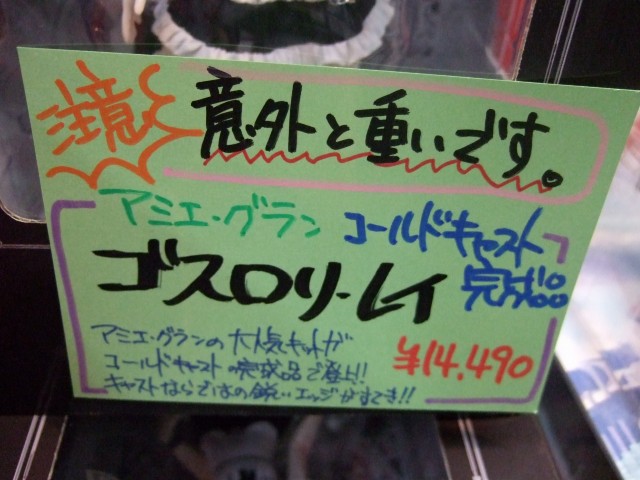 意外と重いです。
アミエ・グラン
コールドキャスト
完成品
ゴスロリ・レイ
アミエ・グランの大人気キットが
コールドキャストの完成品で登上!!
キャストならではの鋭いエッジがすてき!!
¥14,490